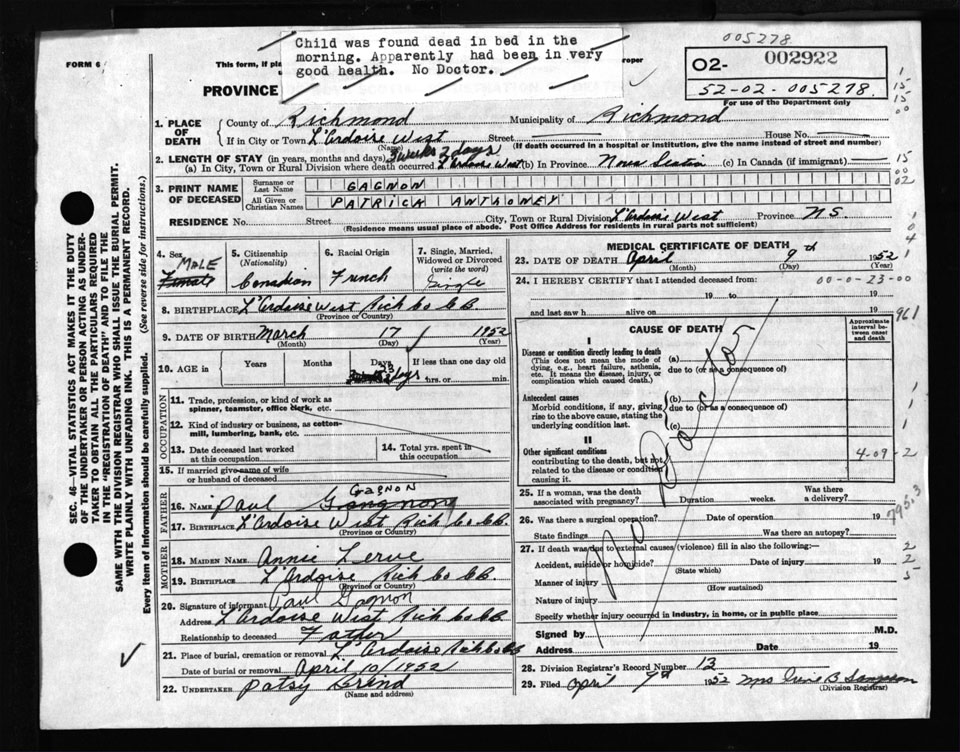 005278
Child was found dead in bed in the
morning. Apparently had been in very
good health. No Doctor.
FORM 6
This form, if pla
roper
O2- 002922
52-02-005278
For use of the Department only
PROVINCE
1. PLACE OF DEATH
County of Richmond Municipality of Richmond
If in City or Town L'Ardoise West Street House No.
(Name) (If death occurred in a hospital or institution, give the name instead of street and number)
2. LENGTH OF STAY (in years, months and days) 3 weeks 2 days
(a) In City, Town or Rural Division where death occurred L'Ardoise West (b) In Province Nova Scotia (c) In Canada (if immigrant)
3. PRINT NAME OF DECEASED
Surname or Last Name GAGNON
All Given or Christian Names PATRICK ANTHONEY
RESIDENCE No. Street City, Town or Rural Division L'Ardoise West Province N.S.
(Residence means usual place of abode. Post Office Address for residents in rural parts not sufficient)
4. Sex MALE Female
5. Citizenship (Nationality) Canadian
6. Racial Origin French
7. Single, Married, Widowed or Divorced (write the word) Single
8. BIRTHPLACE L'Ardoise West Rich Co CB
(Province or Country)
9. DATE OF BIRTH March 17 1952
(Month) (Day) (Year)
10. AGE in Years Months Days 23 days If less than one day old
hrs. or min.
OCCUPATION
11. Trade, profession, or kind of work as
spinner, teamster, office clerk, etc.
12. Kind of industry or business, as cotton-
mill, lumbering, bank, etc.
13. Date deceased last worked
at this occupation
14. Total yrs. spent in
this occupation
15. If married give name of wife
or husband of deceased
FATHER
16. Name Paul Gagnon
17. Birthplace L'Ardoise West Rich Co CB.
(Province or Country)
MOTHER
18. MAIDEN NAME Annie
19. Birthplace L'Ardoise Rich Co CB.
(Province or Country)
20. Signature of informant Paul Gagnon
Address L'Ardoise West Rich Co CB.
Relationship to deceased Father
21. Place of burial, cremation or removal L'Ardoise Rich Co CB
Date of burial or removal April 10/1952
22. UNDERTAKER Patsy
(Name and address)
MEDICAL CERTIFICATE OF DEATH
23. DATE OF DEATH April 9th 1952
(Month) (Day) (Year)
24. I HEREBY CERTIFY that I attended deceased from 00-0-23-00
19 to 19
and last saw h alive on 19
CAUSE OF DEATH
Approximate interval between onset and death
I
Disease or condition directly leading to death
(This does not mean the mode of
dying, e.g., heart failure, asthenia,
etc. It means the disease, injury, or
complication which caused death.)
(a)
due to (or as a consequence of)
Antecedent causes
Morbid conditions, if any, giving
rise to the above cause, stating the
underlying condition last.
(b)
due to (or as a consequence of)
(c)
II
Other significant conditions
contributing to the death, but not
related to the disease or condition
causing it.
4-09-2
No Doctor
25. If a woman, was the death
associated with pregnancy? Duration weeks. Was there
a delivery?
26. Was there a surgical operation? Date of operation 19
State findings Was there an autopsy?
27. If death was due to external causes (violence) fill in also the following:
Accident, suicide or homicide? Date of injury 19
(State which)
Manner of injury
(How sustained)
Nature of injury
Specify whether injury occurred in industry, in home, or in public place
Signed by M.D.
Address Date 19
28. Division Registrar's Record Number 13
29. Filed April 9th 1952 Mrs B Sampson
(Division Registrar)
961
795.3
SEC. 46—VITAL STATISTICS ACT MAKES IT THE DUTY
OF THE UNDERTAKER OR PERSON ACTING AS UNDER-
TAKER TO OBTAIN ALL THE PARTICULARS REQUIRED
IN THE "REGISTRATION OF DEATH" AND TO FILE THE
SAME WITH THE DIVISION REGISTRAR WHO SHALL ISSUE THE BURIAL PERMIT.
WRITE PLAINLY WITH UNFADING INK. THIS IS A PERMANENT RECORD.
Every item of information should be carefully supplied. (See reverse side for instructions.)